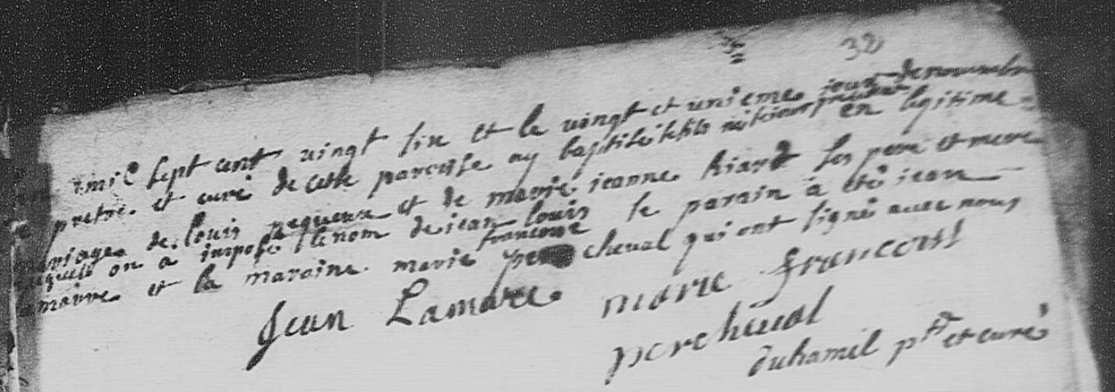 32
mil sept cent vingt six et le vingt et unieme jour de nouembre
pretre et curé de cette paroisse ay baptisé le fils né
mariage de louis paqueux et de marie jeanne hiard ses pere et mere en legitime
on a imposé le nom de jean louis le parain a été jean
lamarre et la maraine marie francoise percheual qui ont signé auec nous
Jean Lamare marie francois
percheual
duhamil ptre et curé